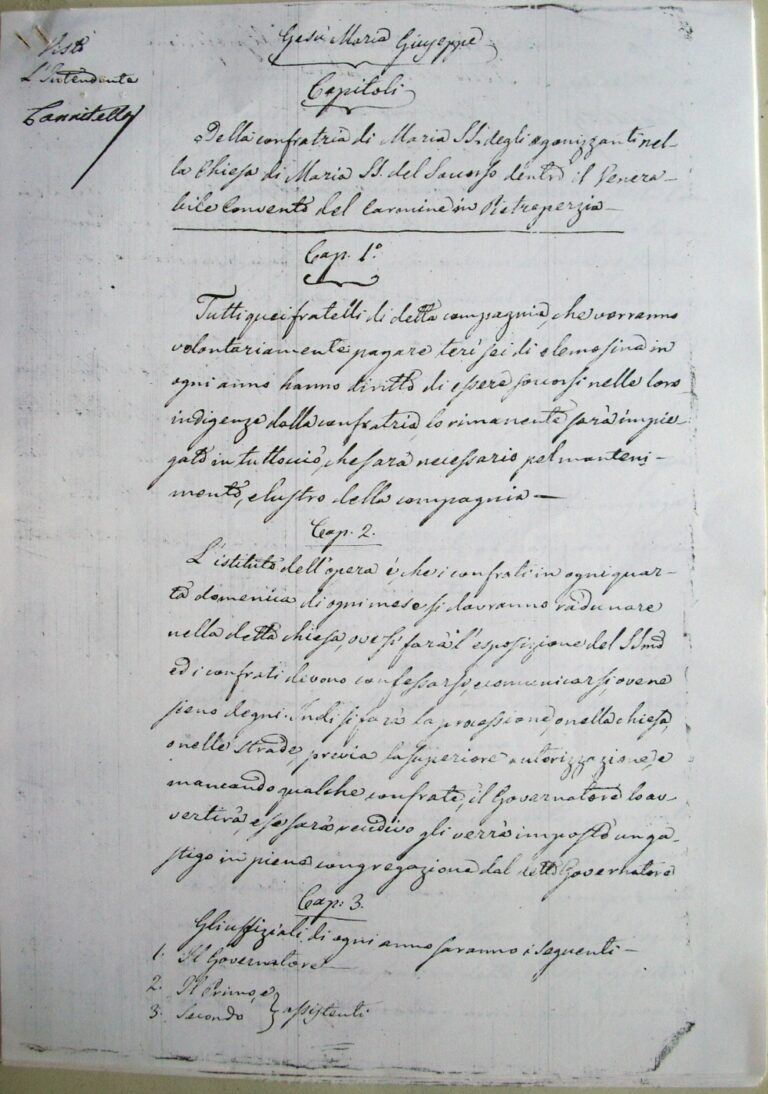 Visti
L'Intendente
Cannitello
Gesù Maria Giuseppe
Capitoli
Della confratria di Maria SS. degli agonizzanti nel-
la Chiesa di Maria SS. del Soccorso dentro il Venera-
bile Convento del Carmine in Pietraperzia
Cap. 1°
Tutti quei fratelli di detta compagnia, che vorranno
volontariamente pagare terì sei di elemosina in
ogni anno hanno diritto di essere soccorsi nelle loro
indigenze dalla confratria, lo rimanente sarà impie-
gato in tuttociò, che sarà necessario pel manteni-
mento, e lustro della compagnia —
Cap. 2.
L'istituto dell'opera è che i confrati in ogni quar-
ta domenica di ogni mese si dovranno radunare
nella detta chiesa, ove si farà l'esposizione del SSmo
ed i confrati devono confessarsi, e comunicarsi, ove ne
sieno degni. Indi si farà la processione, o nella chiesa,
o nelle strade, previa la superiore autorizzazione, e
mancando qualche confrate, il Governatore lo av-
vertirà, e se sarà recidivo gli verrà imposto un ga-
stigo in piena congregazione dal detto Governatore
Cap. 3.
Gli uffiziali di ogni anno saranno i seguenti —
1. Il Governatore
2. Il Primo, e
3. Secondo } assistenti